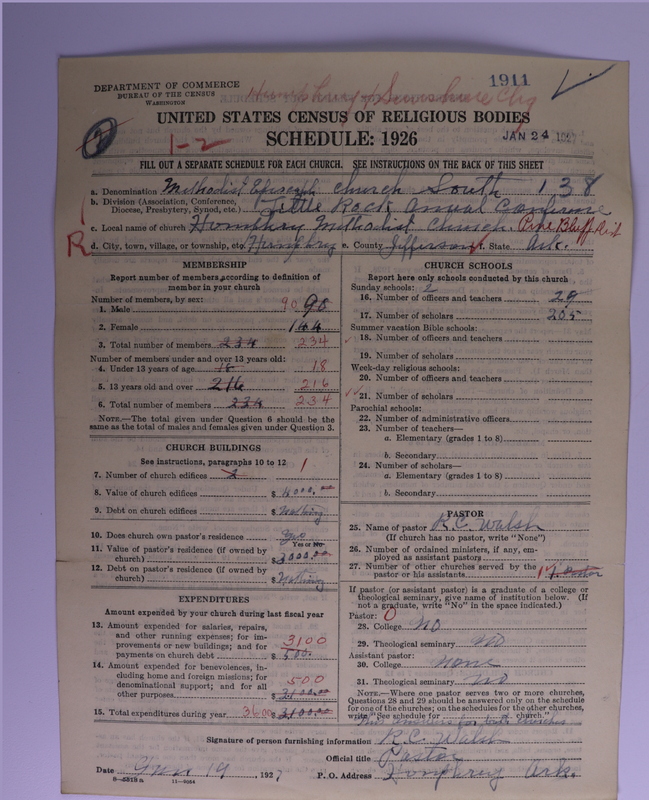 1911
DEPARTMENT OF COMMERCE
BUREAU OF THE CENSUS
WASHINGTON
Humphrey & Sunshine Chg
UNITED STATES CENSUS OF RELIGIOUS BODIES
1-2
SCHEDULE: 1926
JAN 24 1927
FILL OUT A SEPARATE SCHEDULE FOR EACH CHURCH. SEE INSTRUCTIONS ON THE BACK OF THIS SHEET
a. Denomination Methodist Episcopal Church South 138
b. Division (Association, Conference, Diocese, Presbytery, Synod, etc.) Little Rock Annual Conference
c. Local name of church Homphry Methodist Church. Pine Bluff Dist
R
d. City, town, village, or township, etc. Humphry e. County Jefferson f. State Ark.
MEMBERSHIP
Report number of members according to definition of
member in your church
Number of members, by sex:
1. Male 90 90
2. Female 144
3. Total number of members 234 234
Number of members under and over 13 years old:
4. Under 13 years of age 18 18
5. 13 years old and over 216 216
6. Total number of members 234 234
NOTE.—The total given under Question 6 should be the
same as the total of males and females given under Question 3.
CHURCH BUILDINGS
See instructions, paragraphs 10 to 12
7. Number of church edifices 1
8. Value of church edifices $
9. Debt on church edifices $ Nothing
10. Does church own pastor's residence? Yes
Yes or No
11. Value of pastor's residence (if owned by
church) $ 3000.00
12. Debt on pastor's residence (if owned by
church) $ Nothing
EXPENDITURES
Amount expended by your church during last fiscal year
13. Amount expended for salaries, repairs,
and other running expenses; for im-
provements or new buildings; and for
payments on church debt $ 3100 500.
14. Amount expended for benevolences, in-
cluding home and foreign missions; for
denominational support; and for all
other purposes $ 500 3100.00
15. Total expenditures during year 3600 $ 3100.00
CHURCH SCHOOLS
Report here only schools conducted by this church
Sunday schools: 2
16. Number of officers and teachers 29
17. Number of scholars 205
Summer vacation Bible schools:
18. Number of officers and teachers
19. Number of scholars
Week-day religious schools:
20. Number of officers and teachers
21. Number of scholars
Parochial schools:
22. Number of administrative officers
23. Number of teachers—
a. Elementary (grades 1 to 8)
b. Secondary
24. Number of scholars—
a. Elementary (grades 1 to 8)
b. Secondary
PASTOR
25. Name of pastor R.C. Walsh
(If church has no pastor, write "None")
26. Number of ordained ministers, if any, em-
ployed as assistant pastors
27. Number of other churches served by the
pastor or his assistants 1 1. Pastor
If pastor (or assistant pastor) is a graduate of a college or
theological seminary, give name of institution below. (If
not a graduate, write "No" in the space indicated.)
Pastor: 0
28. College No
29. Theological seminary No
Assistant pastor:
30. College none
31. Theological seminary No
NOTE.—Where one pastor serves two or more churches,
Questions 28 and 29 should be answered only on the schedule
for one of the churches; on the schedules for the other churches,
write "See schedule for church."
This answers for both churches
Signature of person furnishing information R.C. Walsh
Official title Pastor
Date Jan 19, 1927 P. O. Address Homphry Ark.
11-9064